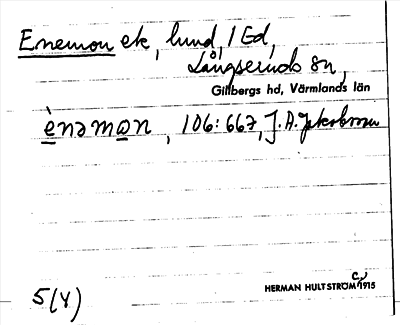 Enemon ek, lund, i Ed,
Långseruds sn,
Gillbergs hd, Värmlands län
ènəmωn, 106:667, J. A. Jakobson
5(y)
HERMAN HULTSTRÖM c. 1915